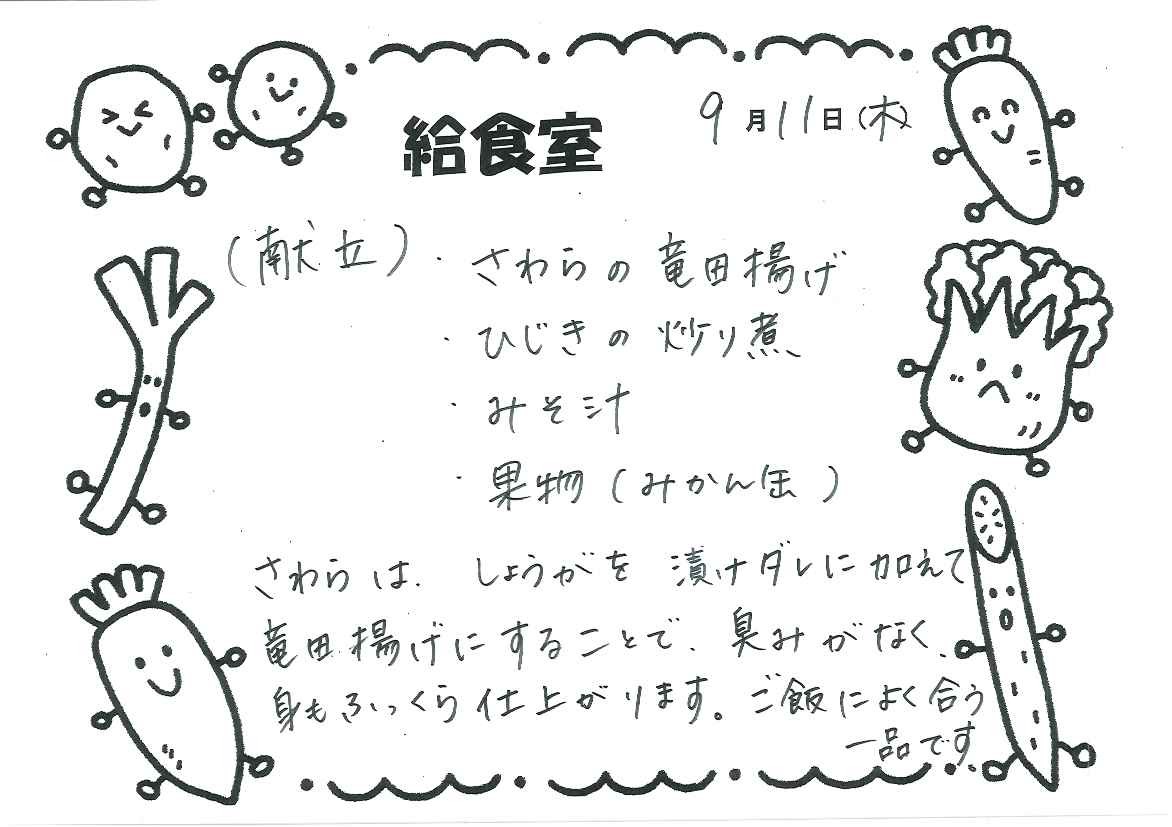 給食室
9月11日(木)
(献立)・さわらの竜田揚げ
・ひじきの炒り煮
・みそ汁
・果物(みかん缶)
さわらは、しょうがを漬けダレに加えて
竜田揚げにすることで、臭みがなく、
身もふっくら仕上がります。ご飯によく合う
一品です。